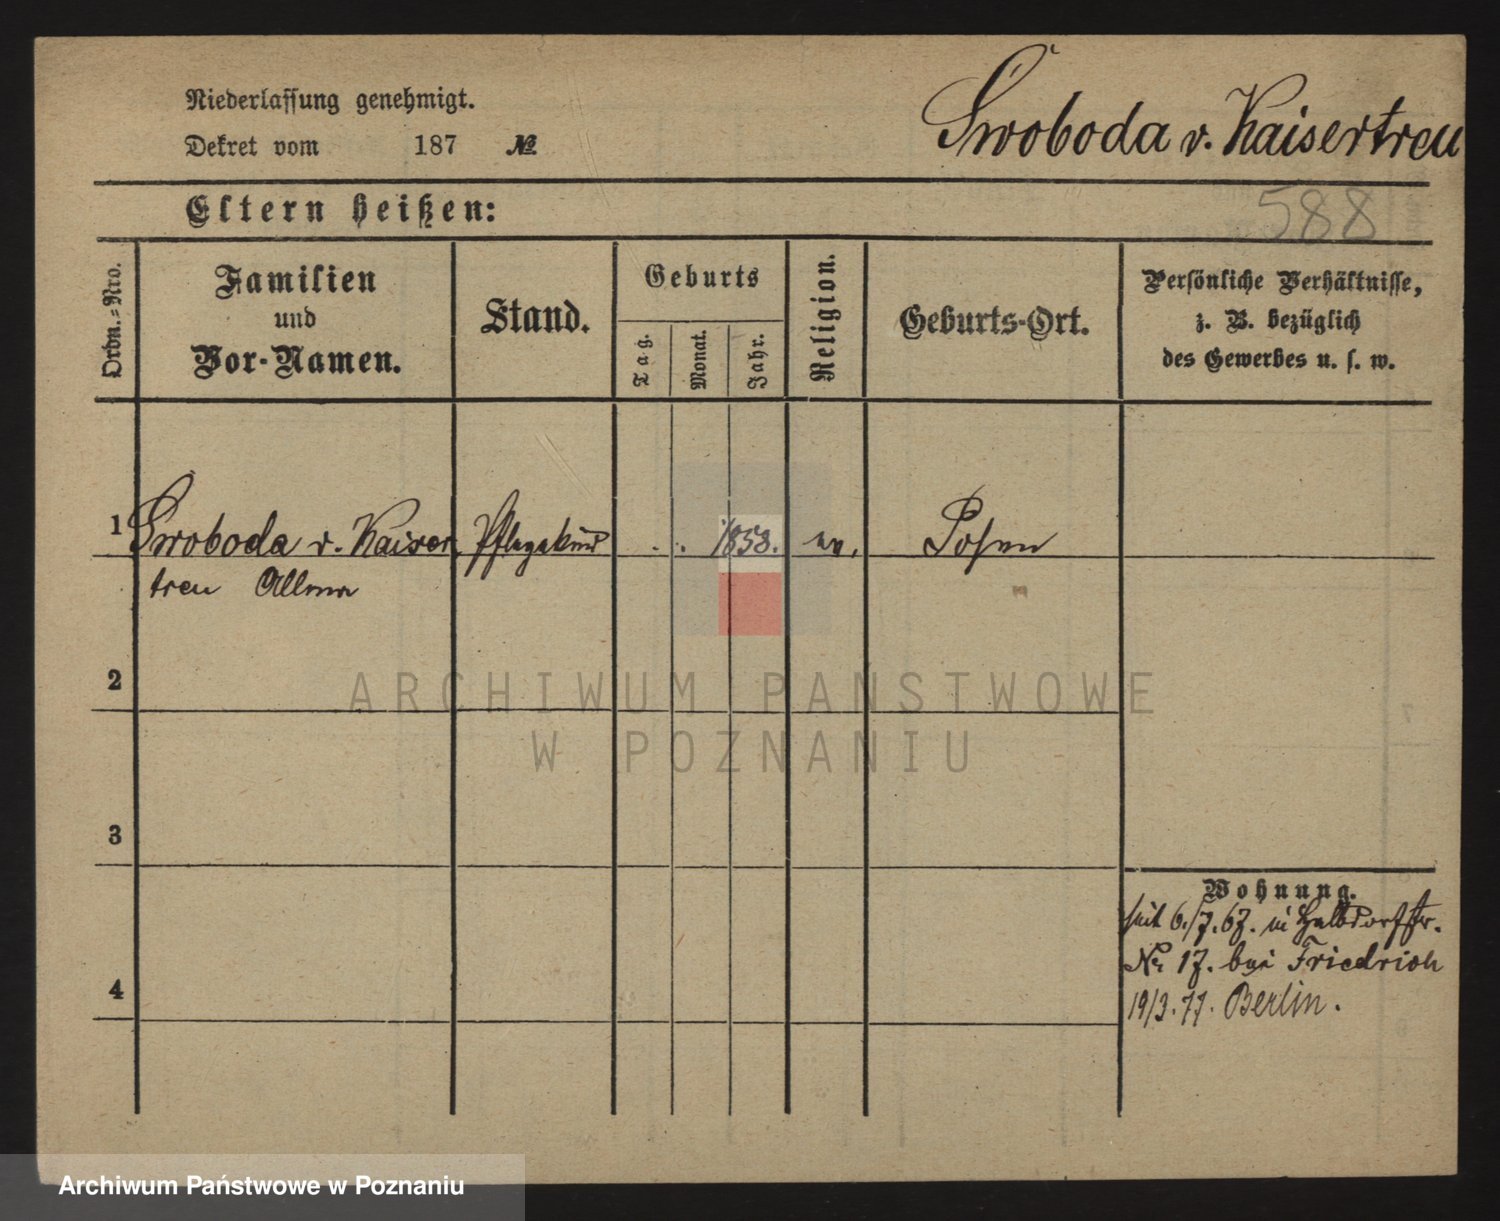 Niederlassung genehmigt.
Dekret vom 187 №
Swoboda v. Kaisertreu
588
Eltern heißen:
Ordn.-Nro.
Familien
und
Vor-Namen.
Stand.
Geburts
Tag.
Monat.
Jahr.
Religion.
Geburts-Ort.
Persönliche Verhältnisse,
z. B. bezüglich
des Gewerbes u. s. w.
1 Swoboda v. Kaiser Pflegekind . . 1858. ev. Posen
treu
2
3
4
Wohnung.
seit 6./7. 67. in Halbdorfstr.
No 17. bei Friedrich
19/3. 77. Berlin.
ARCHIWUM PAŃSTWOWE
W POZNANIU
Archiwum Państwowe w Poznaniu